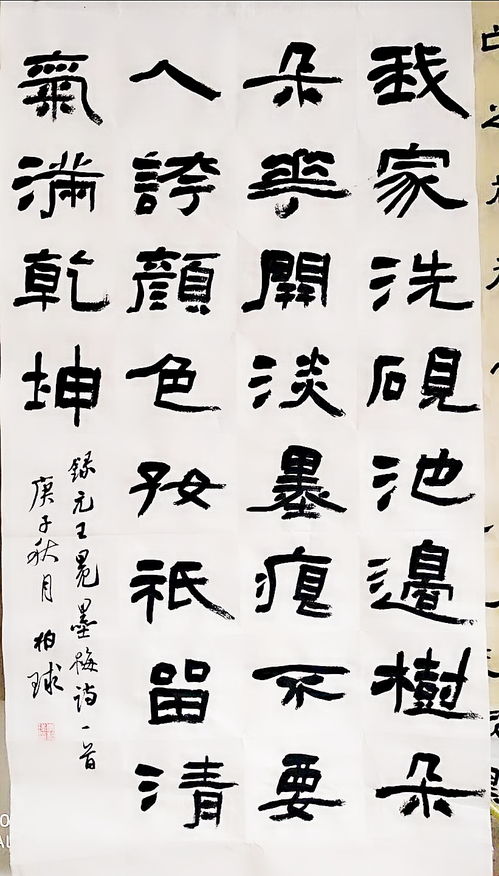 我家洗硯池邊樹朵
朵華開淡墨痕不要
人誇顏色好祇留清
氣滿乾坤
錄元王冕墨梅詩一首
庚子秋月 柏球